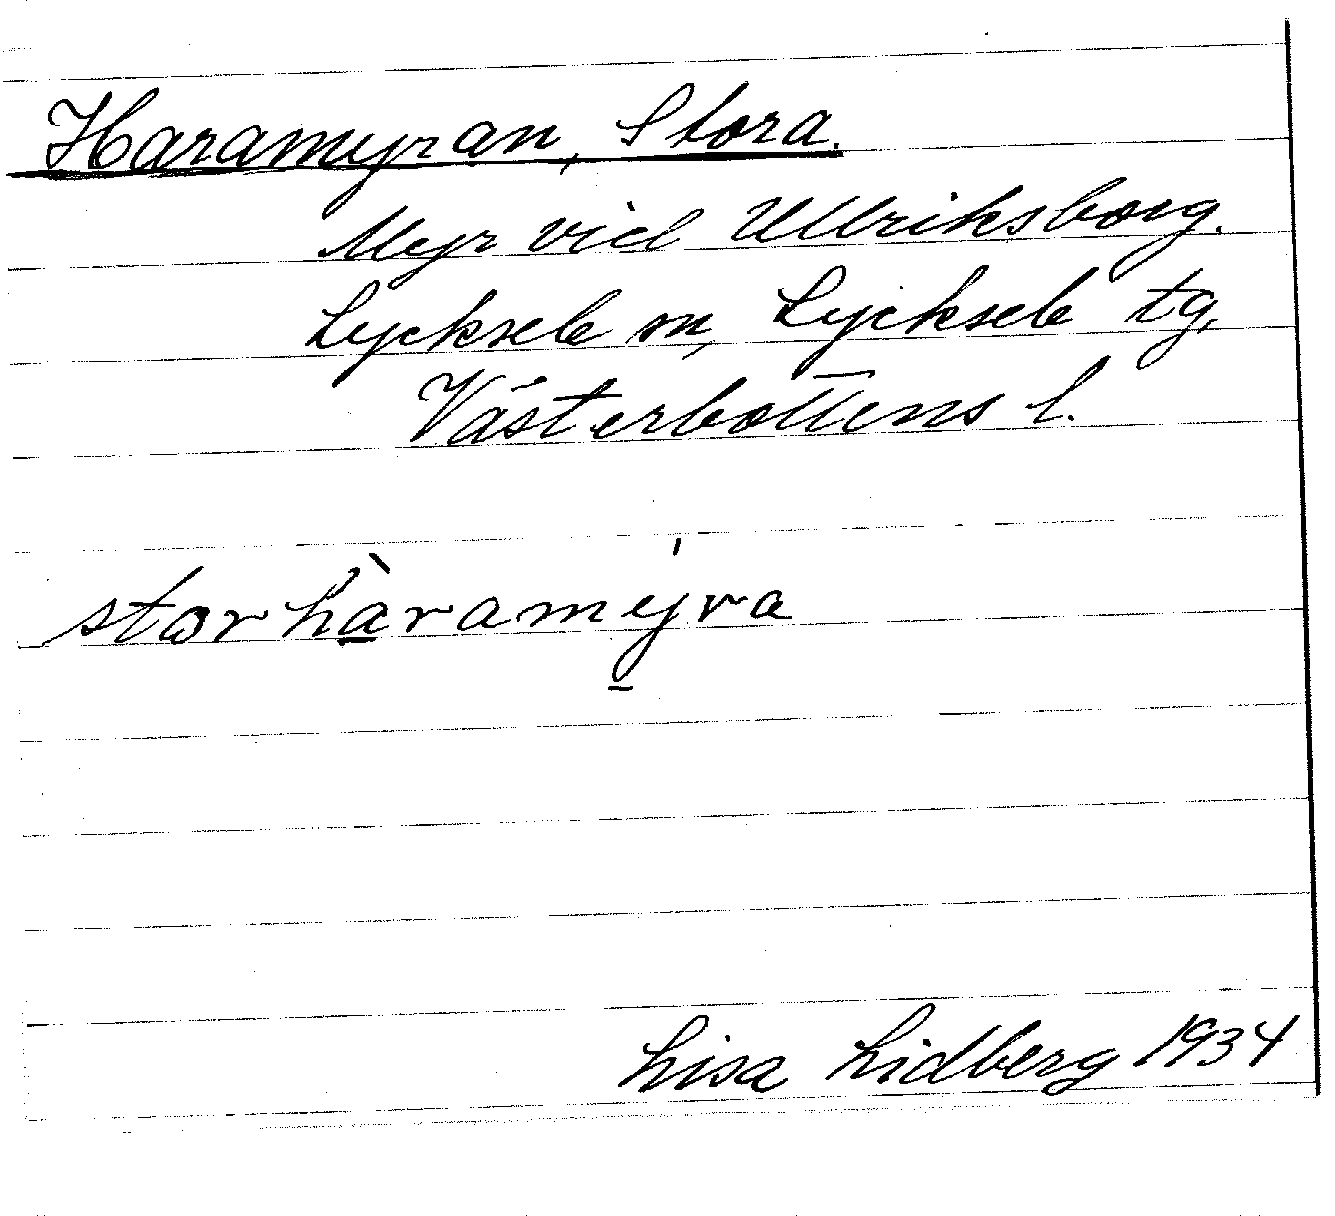 Haramyran, Stora.
Myr vid Ullriksborg.
Lycksele sn, Lycksele tg,
Västerbottens l.
storhàramýra
Lisa Lidberg 1934